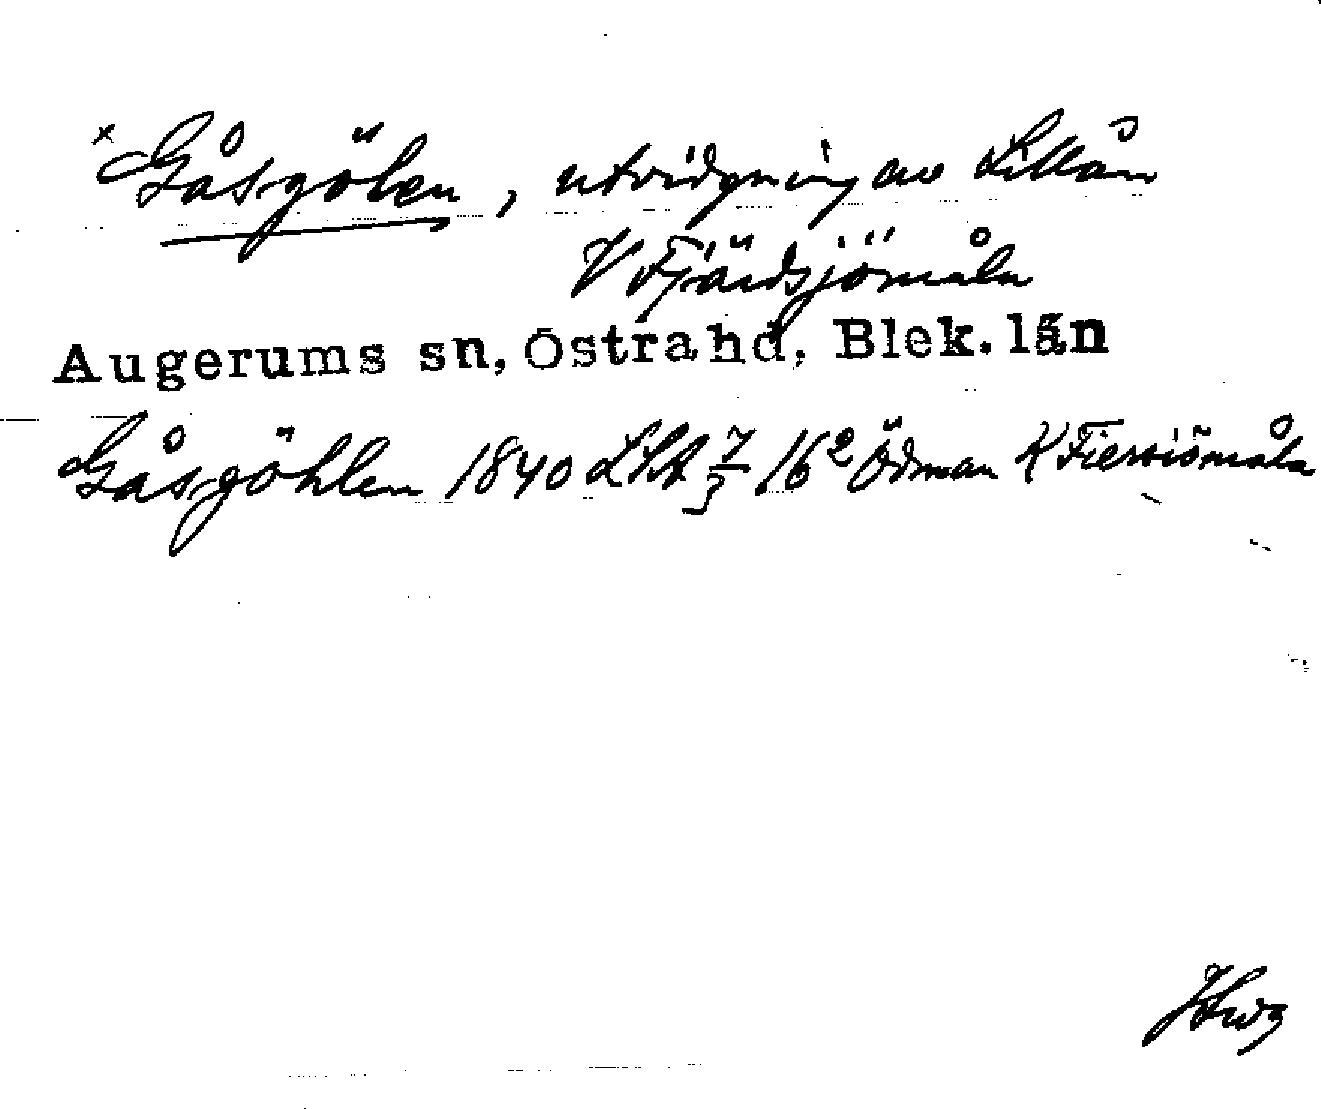 × Gåsgölen, utvidgning av Lillån
V Fjärdsjömåla
Augerums sn, Östra hd, Blek. län
Gåsgöhlen 1840 LSA 16² Ödman K Fiersiömåla